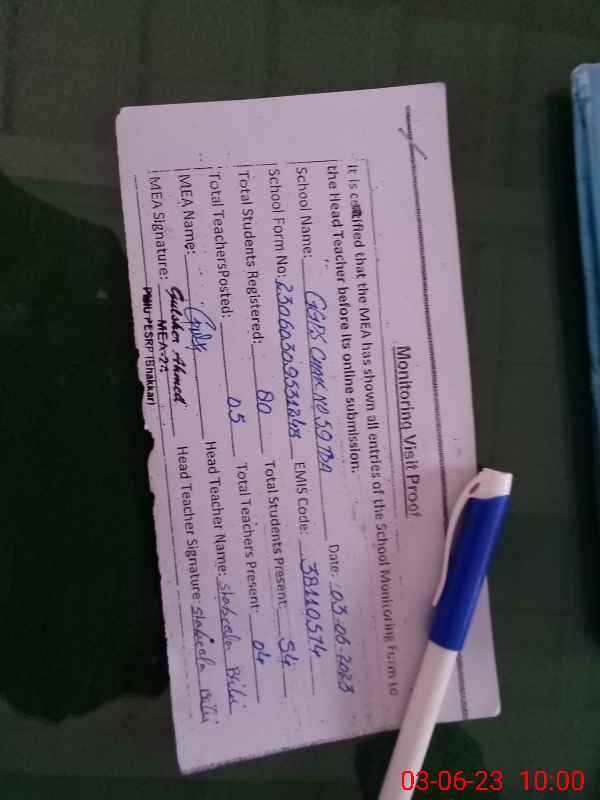 Monitoring Visit Proof
It is certified that the MEA has shown all entries of the School Monitoring Form to
the Head Teacher before its online submission. Date: 03-06-2023
School Name: GGPS CHAK NO 59 TDA
School Form No: EMIS Code: 38110574
Total Students Registered: 80 Total Students Present: 54
Total Teachers Posted: 05 Total Teachers Present: 04
MEA Name: Head Teacher Name: Shabeela Bibi
MEA Signature: Gulsher Ahmed Head Teacher Signature: Shabeela Bibi
MEA-24
PMIU-PESRP (Bhakkar)
03-06-23 10:00